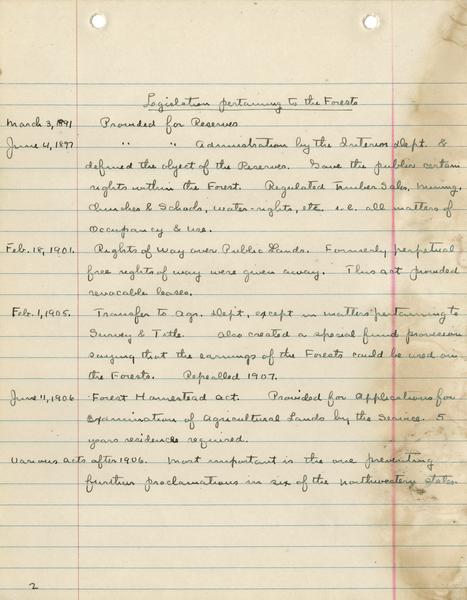 Legislation pertaining to the Forests
March 3, 1891 Provided for Reserves
June 4, 1897 " " Administration by the Interior Dept. &
defined the object of the Reserves. Gave the public certain
rights within the Forest. Regulated Timber Sales, mining,
Churches & Schools, water-rights, etc. i.e. all matters of
Occupancy & Use.
Feb. 18, 1901. Rights of Way over Public Lands. Formerly perpetual
free rights of way were given away. This act provided
revocable leases.
Feb. 1, 1905. Transfer to Agr. Dept, except in matters pertaining to
Survey & Title. Also created a special fund provision
saying that the earnings of the Forests could be used on
the Forests. Repealled 1907.
June 11, 1906 Forest Homestead Act. Provided for Applications for
Examination of Agricultural Lands by the Service. 5
years residence required.
Various Acts after 1906. Most important is the one preventing
further proclamations in six of the northwestern states.
2